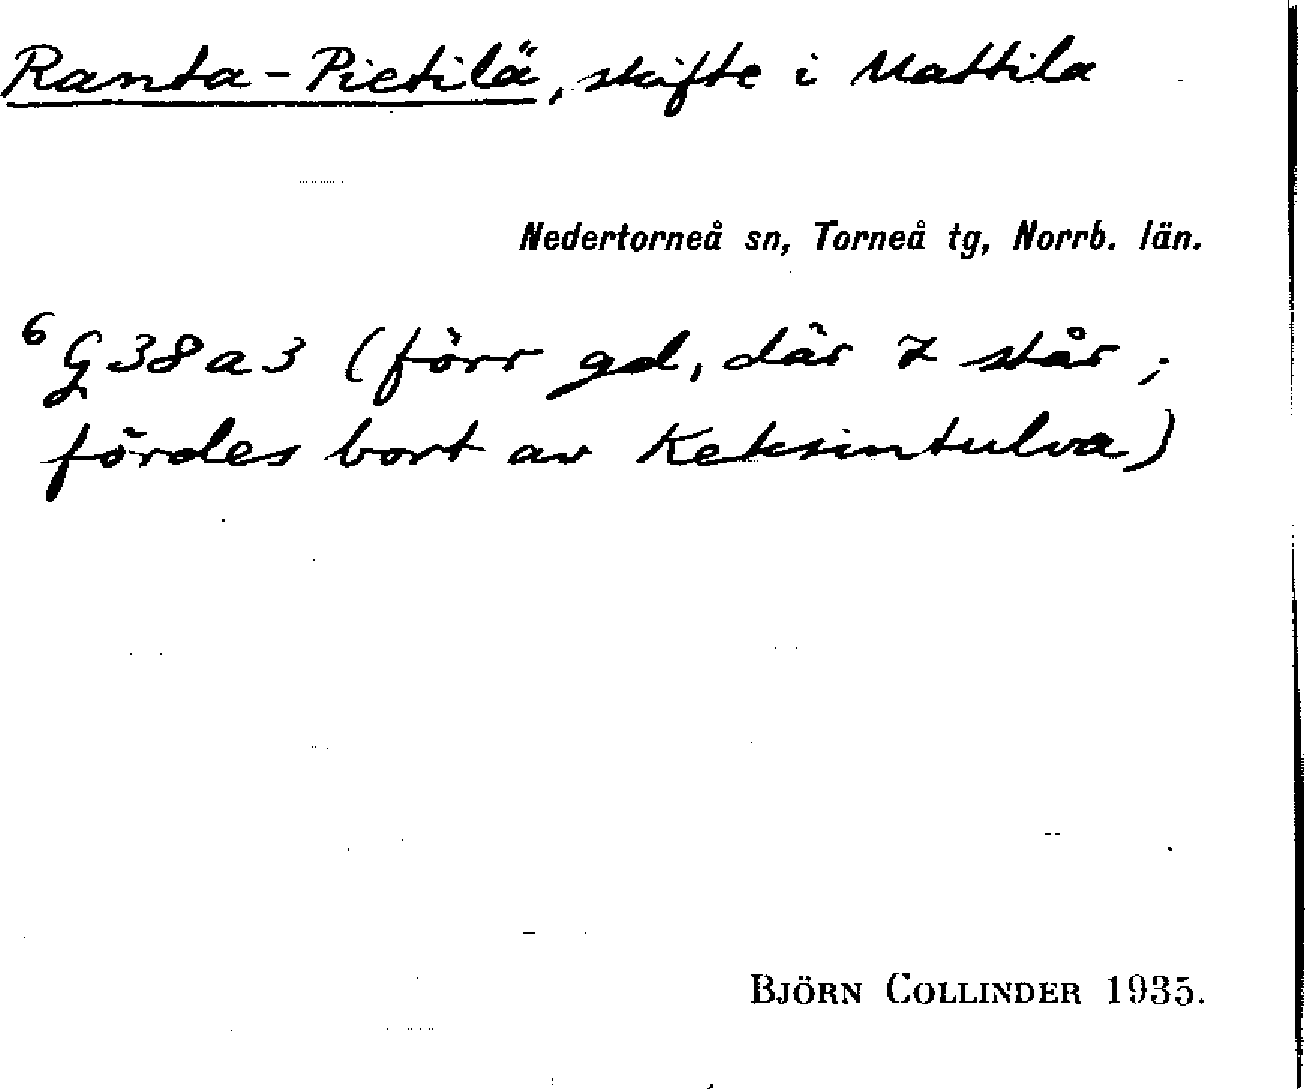 Ranta-Pietilä, skifte i Mattila
Nedertorneå sn, Torneå tg, Norrb. län.
6 G38a3 (förr gd, där 7 står;
fördes bort av Keksintulva)
BJÖRN COLLINDER 1935.